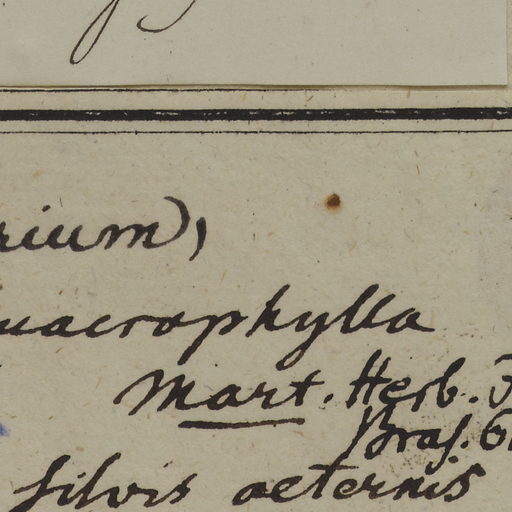 rium),
macrophylla
Mart. Herb. F
Bras. 6
silvis aeternis